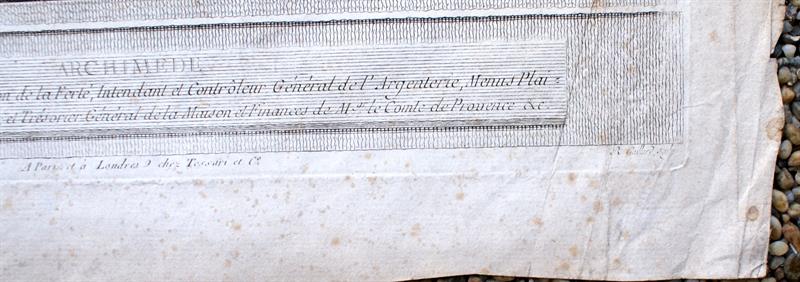 ARCHIMEDE
on de la Ferté, Intendant et Contrôleur Général de l'Argenterie, Menus Plai=
et Trésorier Général de la Maison et Finances de M.gr le Comte de Provence &c.
A Paris et à Londres, chez Tessari et C.º